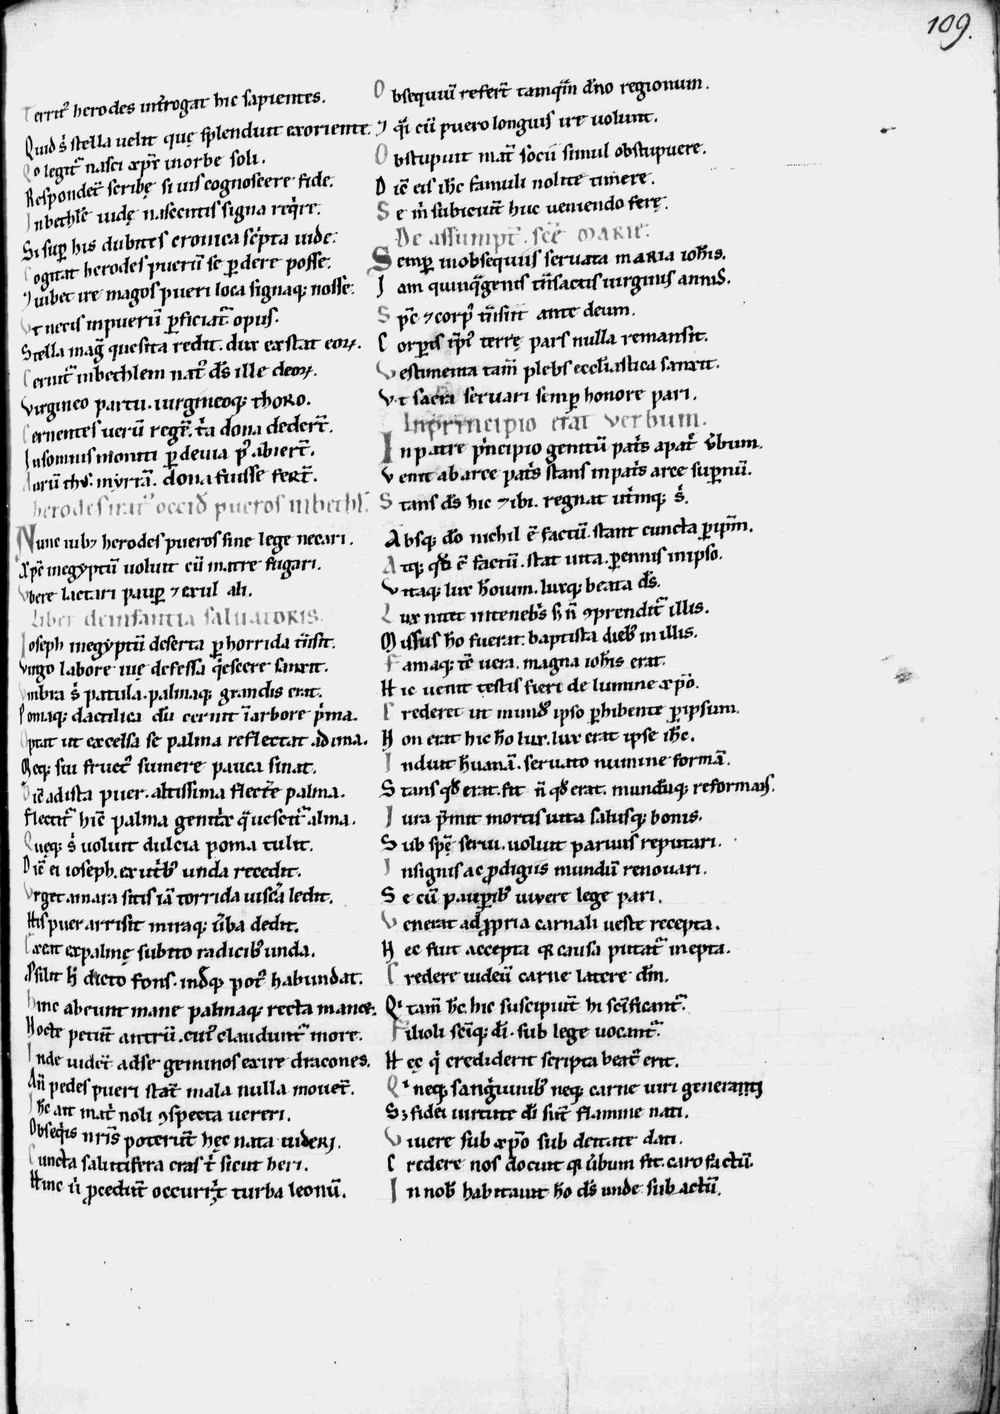 109.
Territ᷒ herodes int̃rogat hic sapientes.
Quid s̃ stella uelit quę splenduit exoriente.
Quo legit᷑ nasci xp̃c inorbe soli.
Respondet᷑ scribę si uis cognoscere fide.
Inbethlẽ iudę nascentis signa req̃re.
Si sup̱ his dubites cronica sc̃pta uide.
Cogitat herodes puerũ se p̱dere posse.
⁊ iubet ire magos pueri loca signaq; nosse.
Vt necis inpuerũ p̱ficiat᷑ opus.
Stella mag̃ quesita redit. dux exstat eoꝝ.
Cernit᷑ inbethlem nat᷒ dс̃ ille deoꝝ.
Virgineo partu. uirgineoq; thoro.
Cernentes uerũ regẽ. t̃a dona dedert̃.
Insomnis moniti p̱ deuia p᷒ abiert̃.
Aurũ th᷒. mẏrrã. dona fuisse fert̃.
herodes irat᷒ occid̃ pueros inbethl̃.
Nunc iubꝫ herodes pueros sine lege necari.
Xp̃c inegẏptũ uoluit cũ matre fugari.
Vbere lactari paup̱ ⁊ exul ali.
Liber deinfantia saluatoris.
Ioseph inegẏptũ deserta p̱ horrida t̃nsit.
Virgo labore uię defessa q̃escere sanxit.
Vmbra s̃ patula. palmaq; grandis erat.
Pomaq; dactilica dũ cernit ĩarbore p̃ma.
Optat ut excelsa se palma reflectat adima.
Neq; sui fruct᷒ sumere pauca sinat.
Dic̃ adista puer. altissima flectẽ palma.
Flectit᷑ hic̃ palma genit̃x q̃uescit᷑ alma.
Queq; s̃ uoluit dulcia poma tulit.
Dic̃ ei ioseph. ex utib᷒ unda recedit.
Vrget amara sitis iã torrida uiscã ledit.
His puer arrisit miraq; ũba dedit.
Exeat expalmę subito radicib᷒ unda.
Psilit h̃ dicto fons. indq̃ pot᷒ habundat.
Hinc abeunt mane palmaq; recta manet.
Nocte petiũt antrũ. cui᷒ claudunt᷑ more.
Inde uidet᷑ adse geminos exire dracones.
Añ pedes pueri stat᷑ mala nulla mouet᷑.
Ih̃c ait mat̃ noli ꝯspecta uereri.
Obseq̃is nr̃is poterũt hęc nata uideri.
Cuncta salutifera cras t̃ sicut heri.
Hinc ũ p̱cedũt occurit̃ turba leonũ.
Obsequiũ refert̃ tamqm̃ dño regionum.
⁊ q̃i cũ puero longius ire uolunt.
Obstupuit mat̃ socũ simul obstupuere.
Dic̃ eis ih̃c famuli nolite timere.
Se m̃ subiciũt huc ueniendo ferę.
De assumpt̃. scẽ marie.
Semp̱ inobsequiis seruata maria ioh̃is.
Iam quinq̃genis t̃nsactis uirginis annis.
Sp̃c ⁊ corp᷒ t̃nsiit ante deum.
Corporis ip̃i᷒ terrę pars nulla remansit.
Vestimenta tam̃ plebs eccl̃iastica sanxit.
Vt sacra seruari semp̱ honore pari.
Inprincipio erat verbum.
Inpatre p̃ncipio genitũ pat̃s apat̃ ũbum.
Venit ab arce pat̃s stans inpat̃s arce supnũ.
Stans dс̃ hic ⁊ ibi. regnat ut̃inq; s̃.
Absq; dõ nichil ẽ factũ. stant cuncta p̱ ip̃m.
Atq; qd̃ ẽ factũ. stat uita p̱ennis inipso.
Vitaq; lux hõium. luxq; beata dс̃.
Lux nitet intenebs̃ h̃ ñ ꝯprendit᷑ illis.
Missus hõ fuerat. baptista dieb᷒ in illis.
Famaq; tc̃ uera. magna ioh̃is erat.
Hic uenit testis fieri de lumine xp̃o.
Crederet ut mund᷒ ipso p̱hibente p̱ipsum.
Non erat hic hõ lux. lux erat ipse ih̃c.
Induit hũanã. seruato numine formã.
Stans qd̃ erat. fit ñ qd̃ erat. mundũq; reformans.
Iura p̃mit mortis uita salusq; bonis.
Sub spẽ serui. uoluit paruus reputari.
Insignis ac p̱digiis mundũ renouari.
Se cũ paup̱ib᷒ uiuere lege pari.
Venerat adp̱pria carnali ueste recepta.
Hec fuit accepta qr̃ causa putat᷑ inepta.
Credere uideũ carne latere dm̃.
Qi tam̃ hc̃ hic suscipiũt hi scĩficant᷑.
Filioli scĩq; dĩ. sub lege uocant᷑.
Hęc q̃ crediderit scripta beat᷒ erit.
Qi neq; sang̃uinib᷒ neq; carne uiri generanti
Sꝫ fidei uirtute dĩ sũt flamine nati.
Viuere sub xp̃o sub deitate dati.
Credere nos docuit qr̃ ũbum fit. caro factũ.
In nob᷒ habitauit hõ dс̃ unde sub actũ.